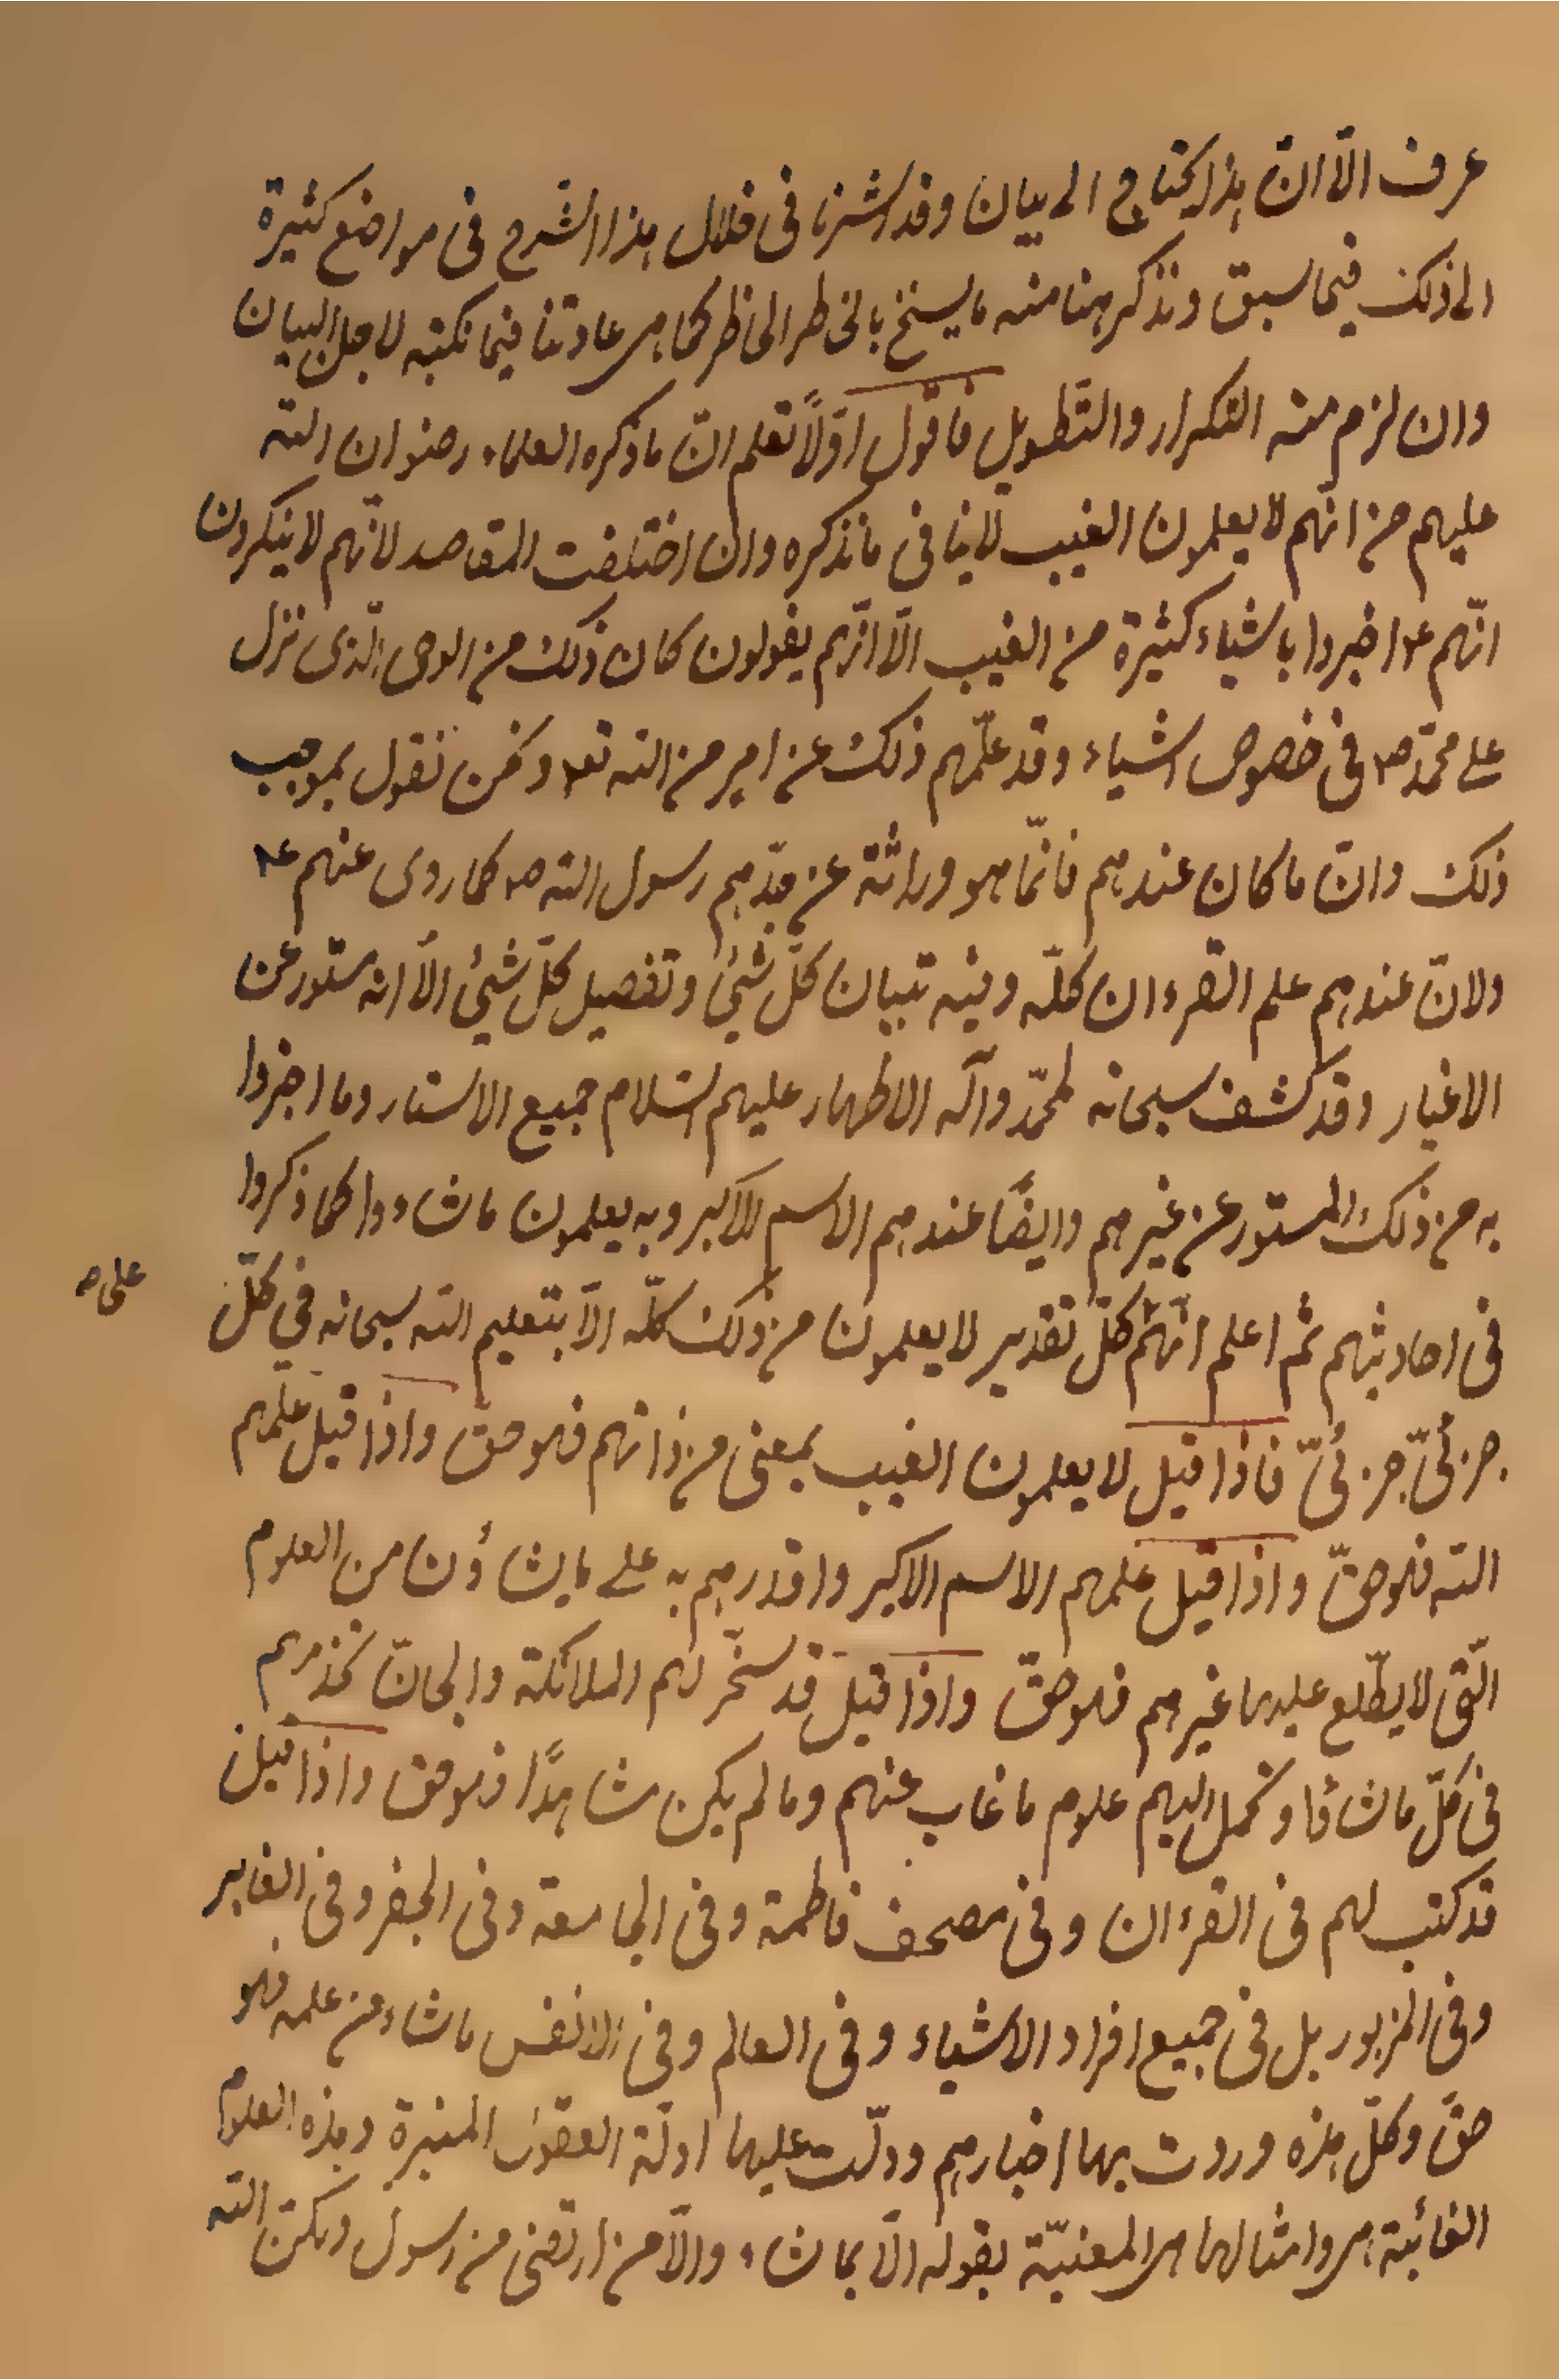 عرف الّا انّ هذا يحتاج الى بيان وقد اشرنا فى خلال هذا الشرح فى مواضع كثيرة
الى ذلك فيما سبق ونذكر هنا منه ما يسنح بالخاطر الخاطر كما هى عادتنا فيما نكتبه لاجل البيان
وان لزم منه التكرار والتّطويل فاقول اوّلاً تعلم انّ ما ذكره العلماء رضوان الله
عليهم من انّهم لا يعلمون الغيب لا ينافى ما نذكره وان اختلفت المقاصد لانّهم لا ينكرون
انّهم ع اخبروا باشياء كثيرة من الغيب الّا انّهم يقولون كان ذلك من الوحى الّذى نزل
على محمّد ص فى خصوص اشياء وقد علّمهم ذلك عن امر من الله تع ونحن نقول بموجب
ذلك وانّ ما كان عندهم فانّما هو وراثة عن جدّهم رسول الله ص كما روى عنهم ع
ولانّ عندهم علم القرءان كلّه وفيه تبيان كلّ شئ وتفصيل كلّ شئ الّا انه مستور عن
الاغيار وقد كشف سبحانه لمحمّد وآله الاطهار عليهم السّلام جميع الاستار وما اخبروا
به من ذلك المستور عن غيرهم وايضًا عندهم الاسم الاكبر وبه يعلمون ما شاءوا كما ذكروا
فى احاديثهم ثم اعلم انّهم كلّ تقدير لا يعلمون من ذلك كلّه الّا بتعليم الله سبحانه فى كلّ
على ص
جزئىّ جزئىّ فاذا قيل لا يعلمون الغيب بمعنى من ذاتهم فهو حقّ واذا قيل علّمهم
الله فهو حقّ واذا قيل علمهم الاسم الاكبر واقدرهم به على ما يشاؤن من العلوم
الّتى لا يطّلع عليها غيرهم فهو حقّ واذا قيل قد سخّر لهم الملائكة والجانّ تخدمهم
فى كلّ ما شاؤا وتحمل اليهم علوم ما غاب عنهم وما لم يكن مشاهدًا فهو حق واذا قيل
قد كتب لهم فى القرءان وفى مصحف فاطمة وفى الجامعة وفى الجفر وفى الغابر
وفى المزبور بل فى جميع افراد الاشياء وفى العالم وفى الانفس ما شاء من علمه فهو
حقّ وكلّ هذه وردت بها اخبارهم ودلّت عليها ادلّة العقول المنيرة وهذه العلوم
الغائبة هى وامثالها هى المعنيّة بقوله الّا بما شاء والّا من ارتضى من رسول ولكنّ الله